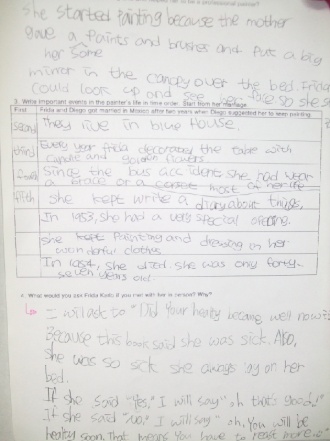 she started painting because the mother
gave a paints and brushes and put a big
her some
mirror in the canopy over the bed. Frida
could look up and see her face so she
3. Write important events in the painter's life in time order. Start from her marriage.
First Frida and Diego got married in Mexico after two years when Diego suggested her to keep painting.
second They live in blue House.
third Every year frida decorates the table with
candle and golden flowers
Since the bus accident she had wear
a brace or a most of her life
fifth she kept write a diary about things.
In 1953, she had a very special opening.
she kept painting and drawing in her
wonderful clothes
In 1954, she died. she was only forty-
seven years old.
What would you ask Frida Kahlo if you met with her in person? Why?
I will ask to "Did your healty became well now?
Because this book said she was sick. Also,
she was so sick she always lay on her
bed.
If she said "Yes," I will say "oh that's good!"
If she said "no," I will say "oh, you will be
healty soon. That means you have to rest more.